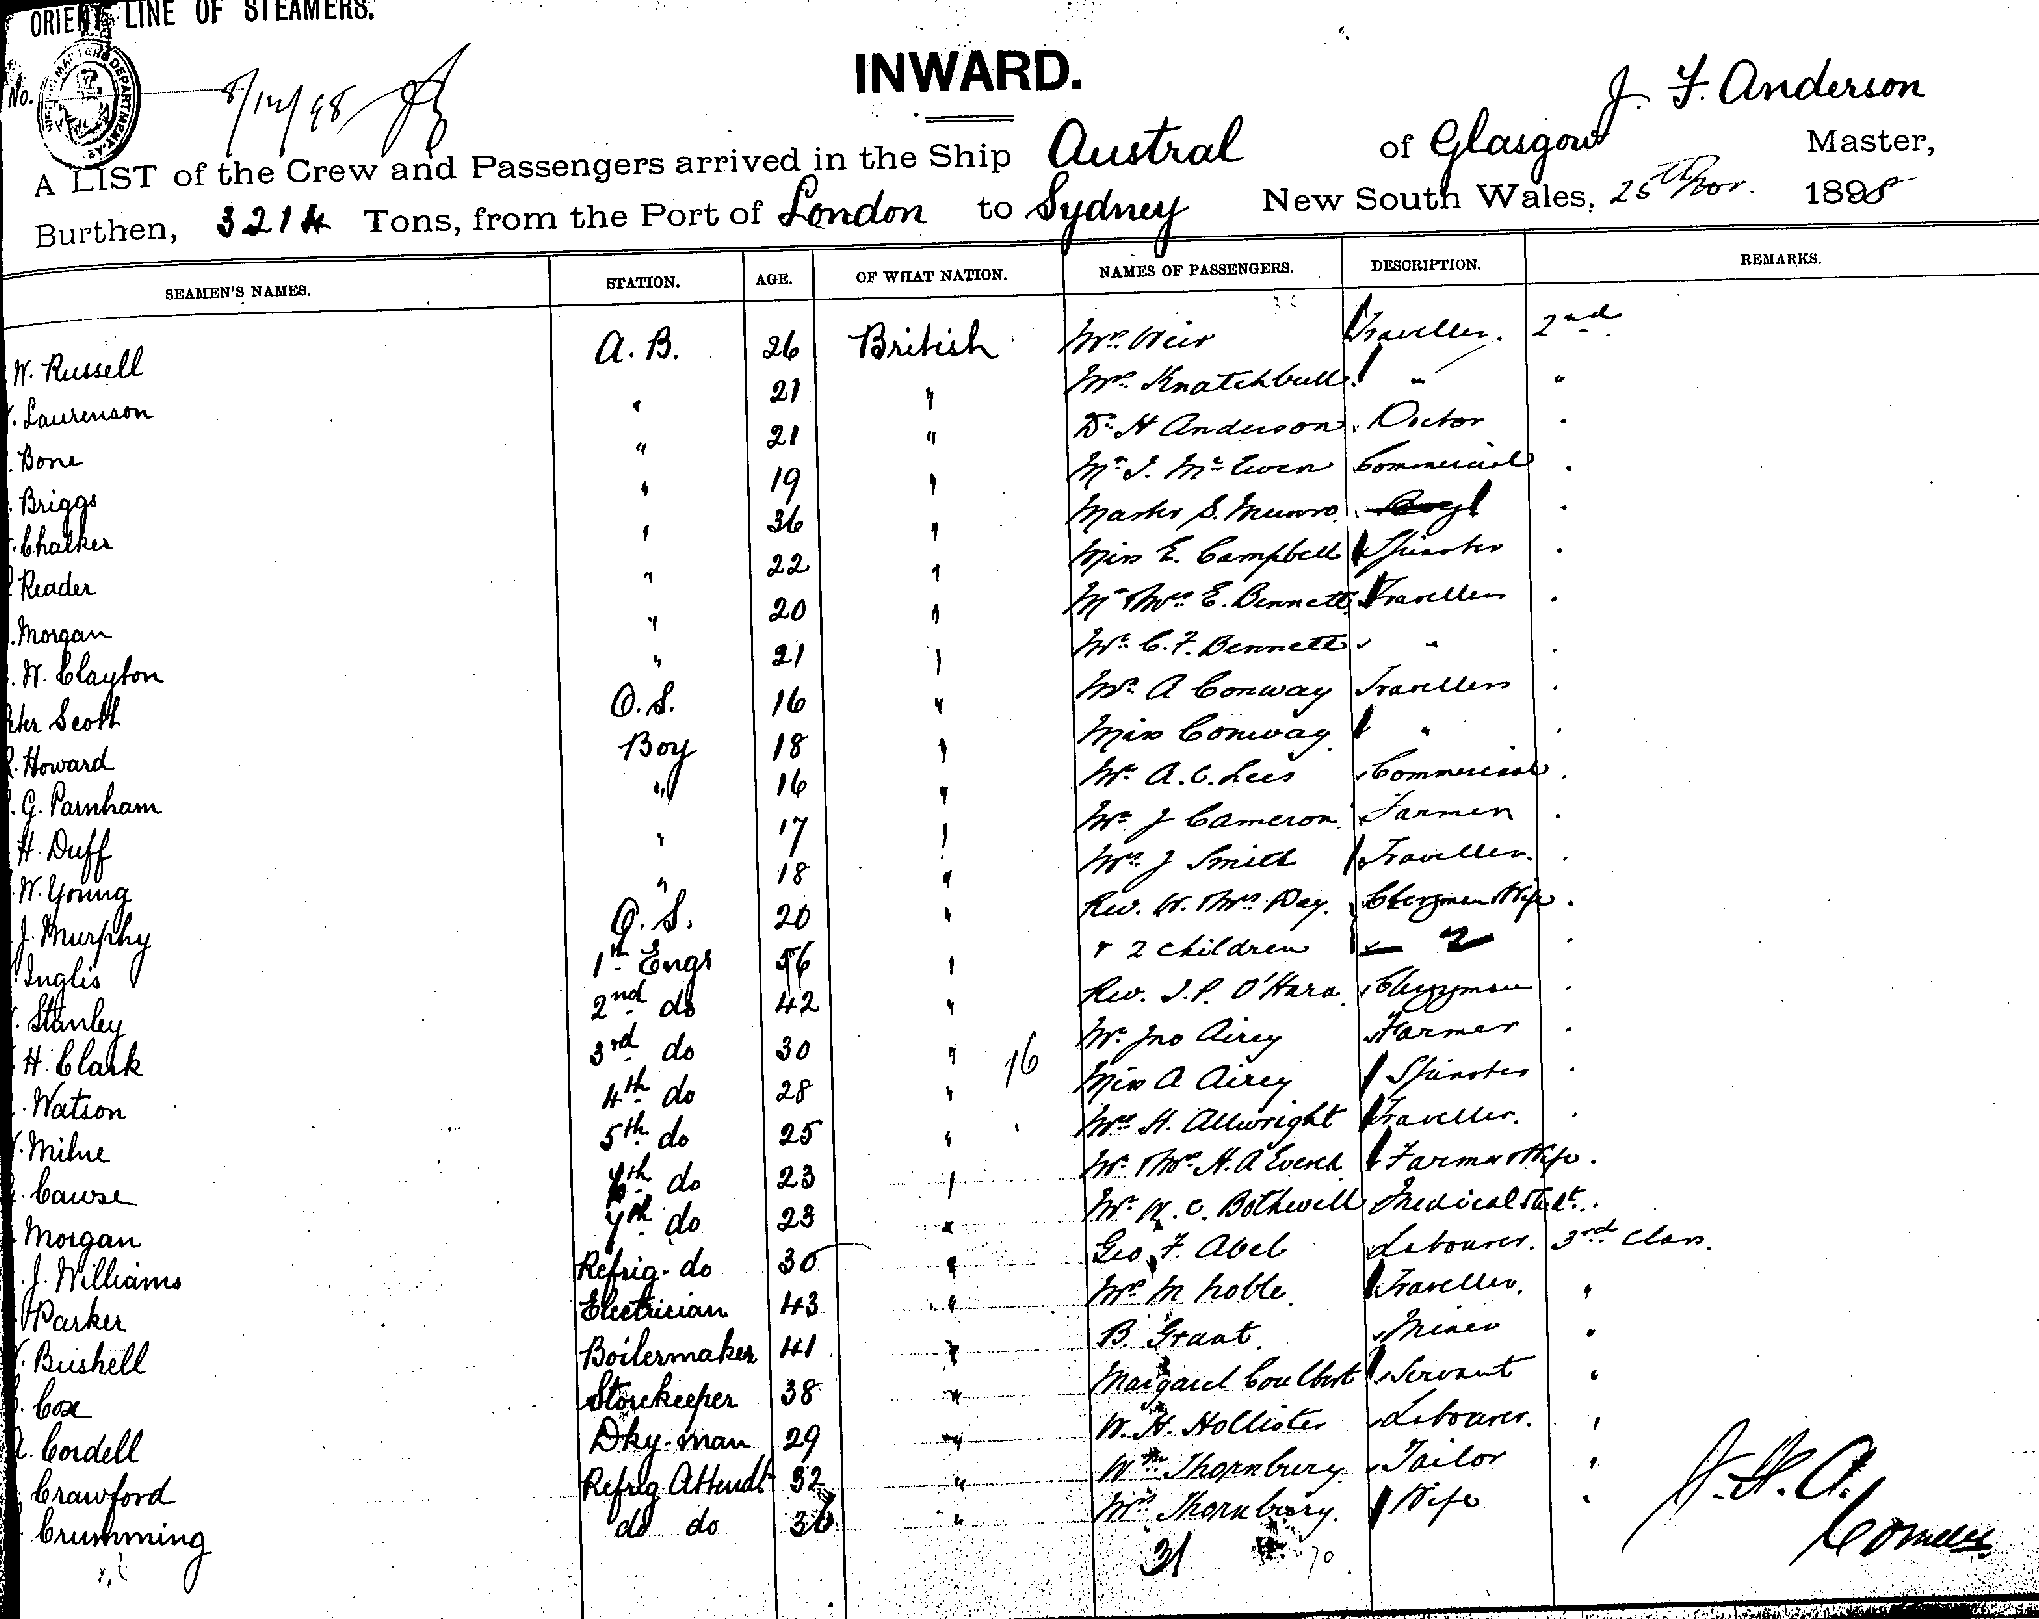 ORIENT LINE OF STEAMERS.
No.
8/12/98
INWARD.
J. F. Anderson
A LIST of the Crew and Passengers arrived in the Ship Austral of Glasgow Master,
Burthen, 3214 Tons, from the Port of London to Sydney New South Wales, 25th Nov. 1898
SEAMEN'S NAMES. STATION. AGE. OF WHAT NATION. NAMES OF PASSENGERS. DESCRIPTION. REMARKS.
W. Russell A. B. 26 British Mrs Weir Traveller. 2nd
Laurenson " 21 " Mrs Knatchbull " "
Bone " 21 " Dr H Anderson Doctor .
Briggs " 19 " Mr J. McEwen Commercial .
Chalker " 36 " Master S. Munro .
Reader " 22 " Miss E. Campbell Spinster .
Morgan " 20 " Mr & Mrs E. Bennett Travellers .
W. Clayton " 21 " Mr C. F. Bennett " .
Scott O. S. 16 " Mr A Conway Travellers .
Howard Boy 18 " Miss Conway " .
G. Parnham " 16 " Mr A. C. Lees Commercial .
H. Duff " 17 " Mr J Cameron Farmer .
W. Young " 18 " Mrs J Smith Traveller. .
J. Murphy O. S. 20 " Rev. W. & Mrs Day. Clergyman Wife .
Inglis 1st Engr 56 " & 2 children 2 .
Stanley 2nd do 42 " Rev. J. P. O'Hara Clergyman .
H. Clark 3rd do 30 " 16 Mr Jno Airey Farmer .
Watson 4th do 28 " Miss A Airey Spinster .
Milne 5th do 25 " Mrs H. Allwright Traveller. .
Cawse 6th do 23 " Mr & Mrs H. A Farmer & Wife .
Morgan 7th do 23 " Mr W. C. Bothwell Medical Studt. .
J. Williams Refrig. do 30 " Geo F. Abel Labourer. 3rd Class.
Parker Electrician 43 " Mrs M Noble Traveller. "
Bushell Boilermaker 41 " B. Grant. Miner "
Cox Storekeeper 38 " Margaret Servant "
Cordell Dky. man 29 " W. H. Hollister Labourer. "
Crawford Refrig Attendt 32 " Wm Thornbury Tailor "
Crumming do do 36 " Mrs Thornbury. Wife "
31 70